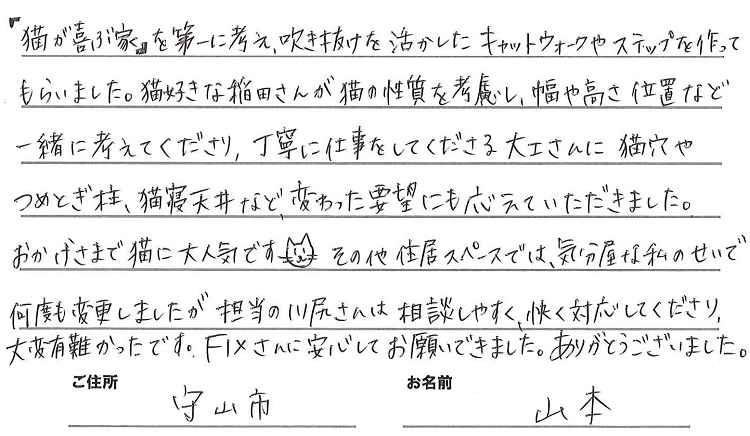 『猫が喜ぶ家』を第一に考え、吹き抜けを活かしたキャットウォークやステップを作って
もらいました。猫好きな稲田さんが猫の性質を考慮し、幅や高さ位置など
一緒に考えてくださり、丁寧に仕事をしてくださる大工さんに猫穴や
つめとぎ柱、猫寝天井など、変わった要望にも応えていただきました。
おかげさまで猫に大人気です その他住居スペースでは、気分屋な私のせいで
何度も変更しましたが担当の川尻さんは相談しやすく、快く対応してくださり、
大変有難かったです。FIXさんに安心してお願いできました。ありがとうございました。
ご住所 守山市 お名前 山本